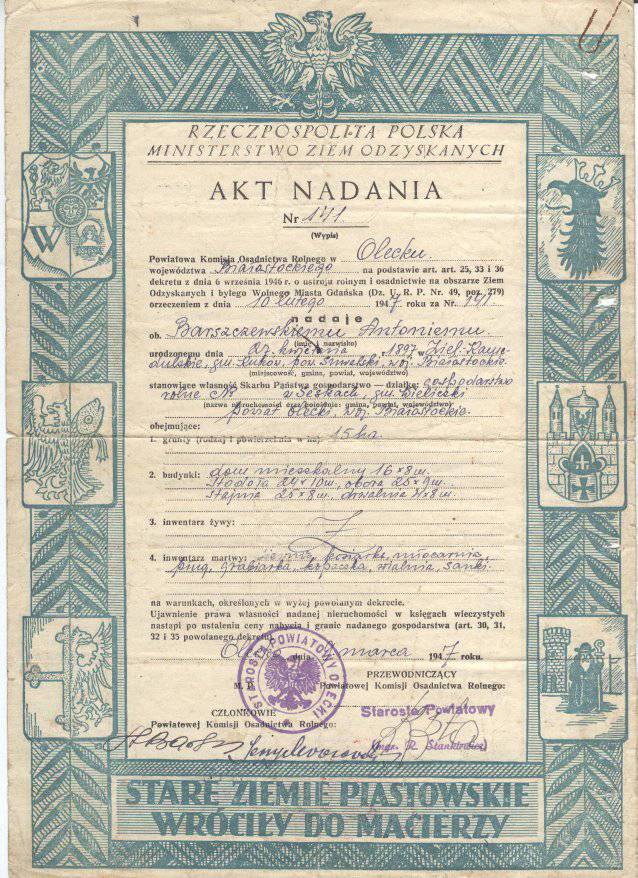 RZECZPOSPOLITA POLSKA
MINISTERSTWO ZIEM ODZYSKANYCH
AKT NADANIA
Nr 141
(Wypis)
Powiatowa Komisja Osadnictwa Rolnego w Olecku
województwa Białostockiego na podstawie art. art. 25, 33 i 36
dekretu z dnia 6 września 1946 r. o ustroju rolnym i osadnictwie na obszarze Ziem
Odzyskanych i byłego Wolnego Miasta Gdańska (Dz. U. R. P. Nr. 49, poz. 279)
orzeczeniem z dnia 10 lutego 1947 roku za Nr 141
nadaje
ob. Barszczewskiemu Antoniemu
(imię i nazwisko)
urodzonemu dnia kwietnia 1897
gm. Kuków, pow. Suwalski, woj. Białostockie
(miejscowość, gmina, powiat, województwo)
stanowiące własność Skarbu Państwa gospodarstwo — działkę: gospodarstwo
rolne w Seskach, gm. Wieliczki
(nazwa nieruchomości oraz położenie: gmina, powiat, województwo)
powiat Olecki, woj. Białostockie.
obejmujące:
1. grunty (rodzaj i powierzchnia w ha) 15 ha.
2. budynki: dom mieszkalny 16 x 8 m.
stodoła 24 x 10 m, obora 25 x 9 m.
stajnia 25 x 8 m, drwalnia 4 x 8 m.
3. inwentarz żywy:
4. inwentarz martwy: kosiarka, młocarnia,
pług, grabiarka, kopaczka, wialnia, sanki.
na warunkach, określonych w wyżej powołanym dekrecie.
Ujawnienie prawa własności nadanej nieruchomości w księgach wieczystych
nastąpi po ustaleniu ceny nabycia i granic nadanego gospodarstwa (art. 30, 31,
32 i 35 powołanego dekretu).
dnia marca 1947 roku.
STAROSTA POWIATOWY OLECKI
PRZEWODNICZĄCY
Powiatowej Komisji Osadnictwa Rolnego:
CZŁONKOWIE
Powiatowej Komisji Osadnictwa Rolnego:
Starosta Powiatowy
(mgr. R. Stankiewicz)
W
STARE ZIEMIE PIASTOWSKIE
WRÓCIŁY DO MACIERZY